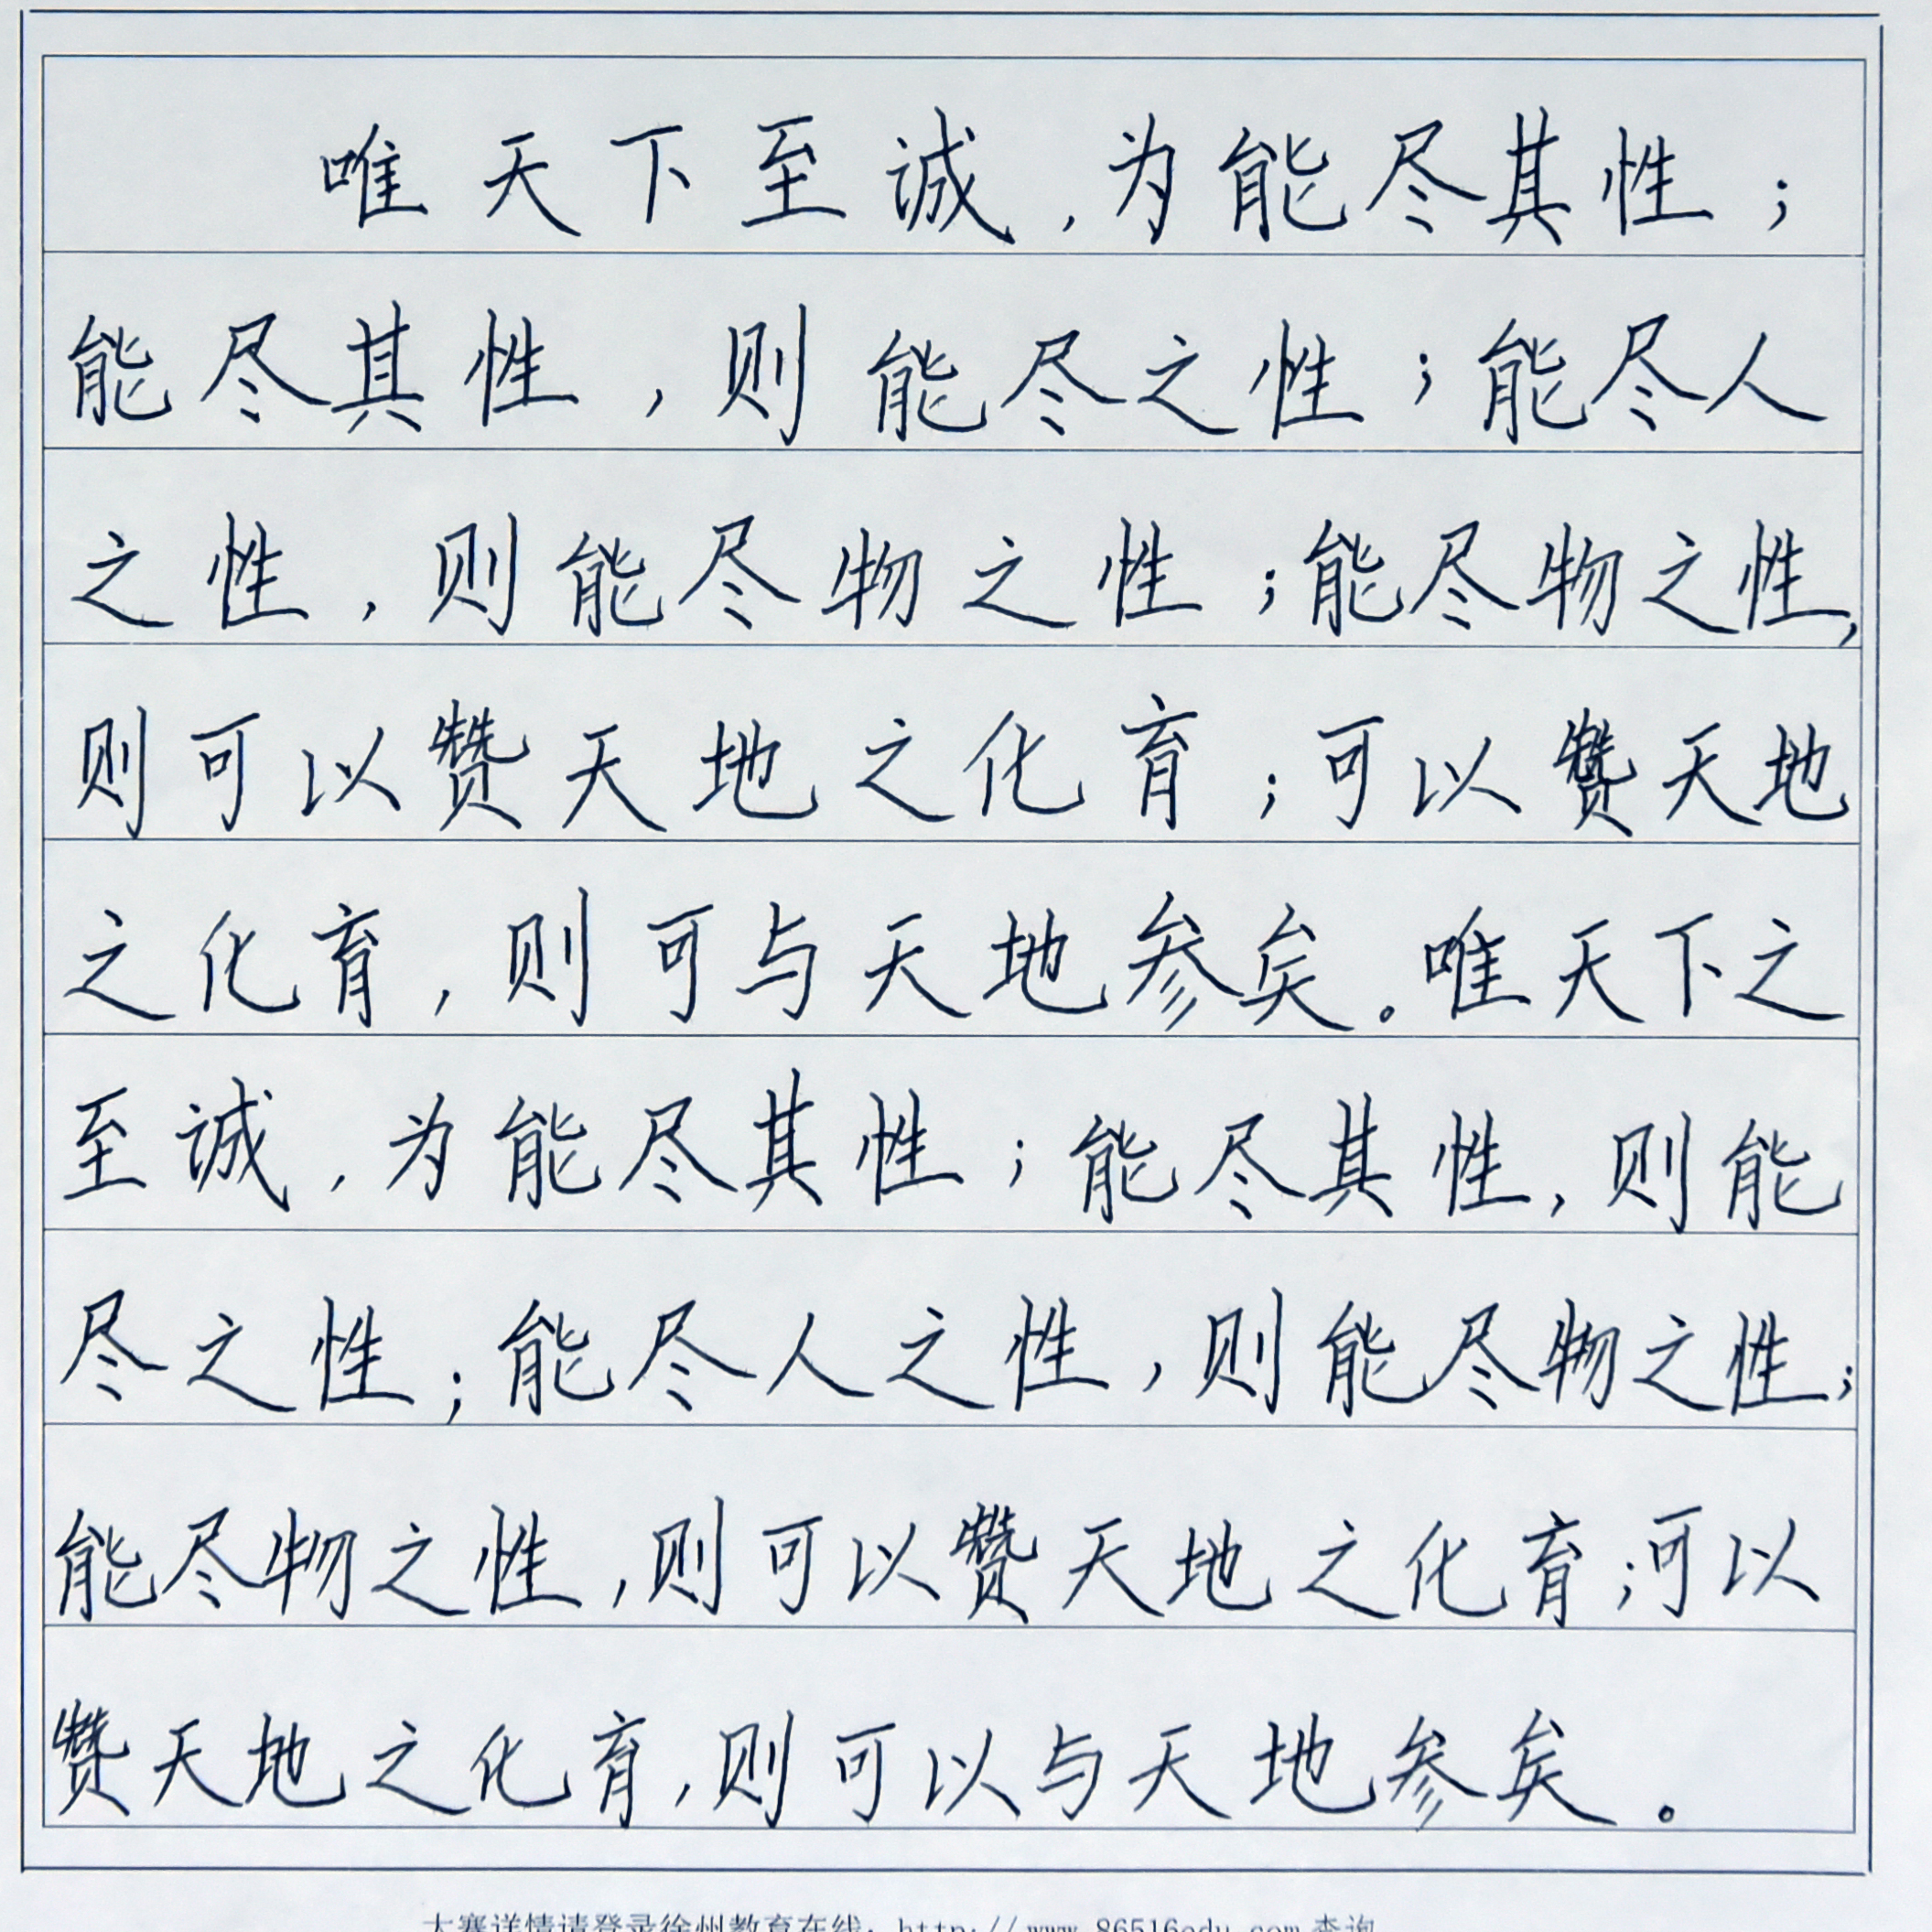 唯天下至诚，为能尽其性；
能尽其性，则能尽之性；能尽人
之性，则能尽物之性；能尽物之性，
则可以赞天地之化育；可以赞天地
之化育，则可与天地参矣。唯天下之
至诚，为能尽其性；能尽其性，则能
尽之性；能尽人之性，则能尽物之性；
能尽物之性，则可以赞天地之化育；可以
赞天地之化育，则可以与天地参矣。
大赛详情请登录徐州教育在线：http://www.86516edu.com查询